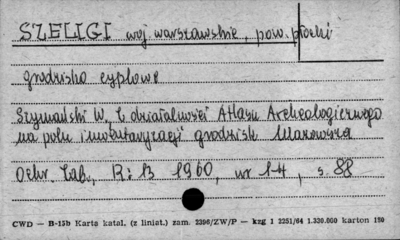 SZELIGI woj. warszawskie, pow. płocki
grodzisko cyplowe
Szymański W. Z działalności Atlasu Archeologicznego
na polu inwentaryzacji grodzisk Mazowsza
Ochr. Zab., R: 13 1960, nr 1-4, s. 88
CWD — B-15b Karta katal. (z liniat.) zam. 2396/ZW/P — kzg 1 2251/64 1.320.000 karton 180